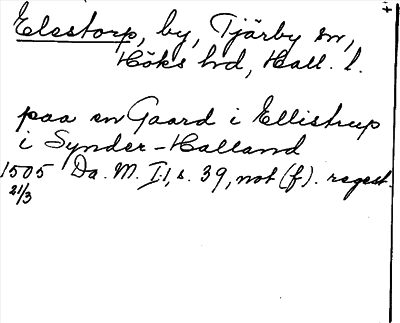 Elestorp, by, Tjärby sn,
Höks hd, Hall. l.
paa en Gaard i Ellistrup
i Synder-Halland
1505 Da. M. I:1, s. 39, not (f). regest.
21/3